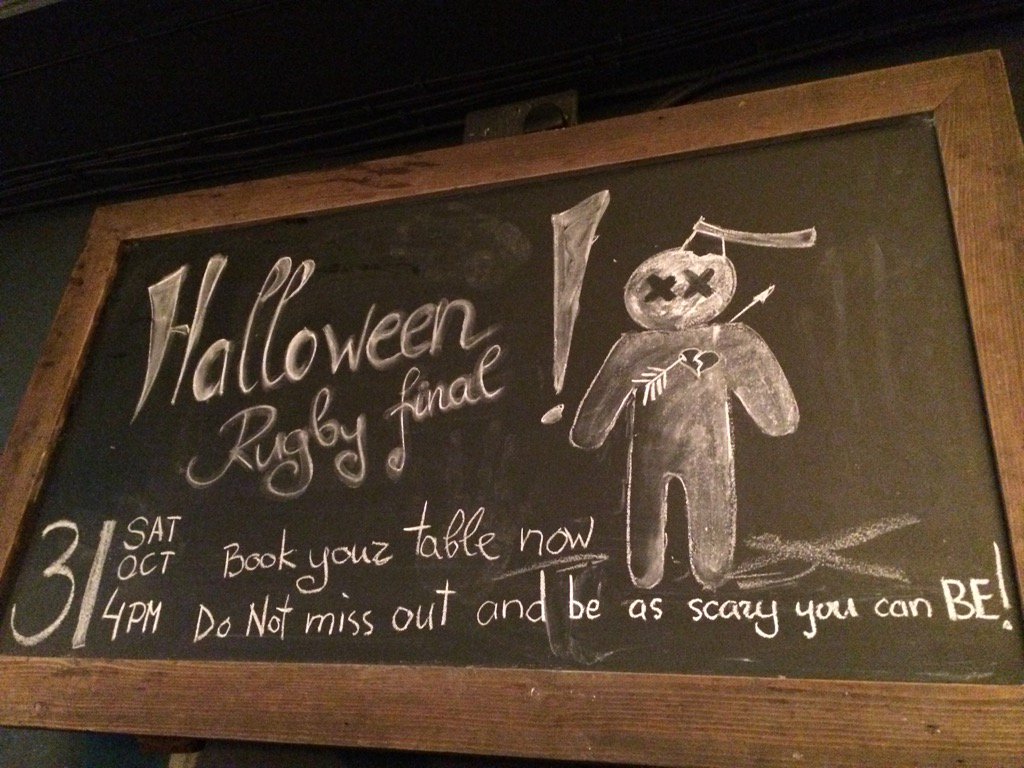 Halloween !
Rugby final
31 SAT
OCT
4PM
Book your table now
Do Not miss out and be as scary you can BE!